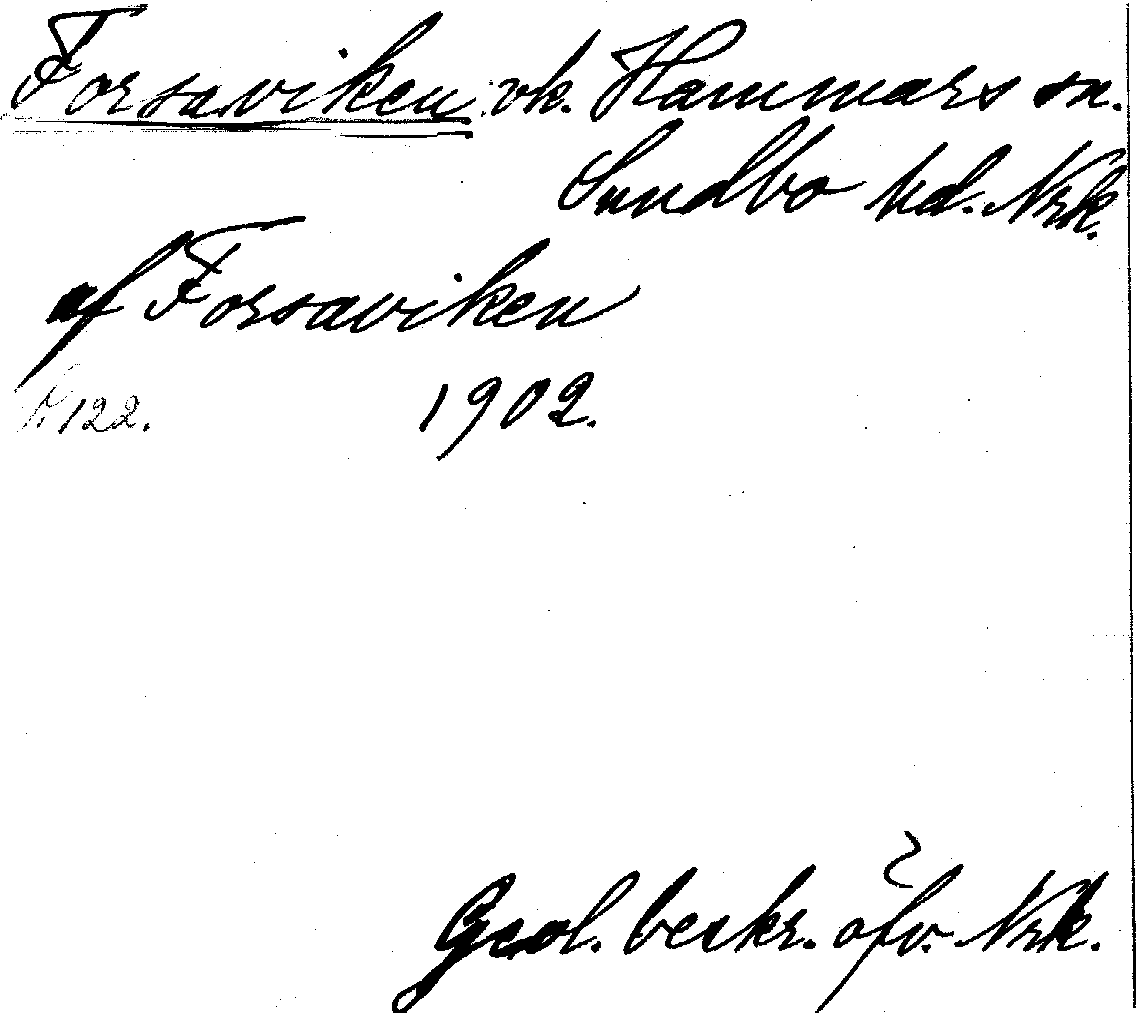 Forsaviken vk. Hammars sn.
Sundbo hd. Nrk.
af Forsaviken
122. 1902.
Geol. beskr. öfv. Nrk.